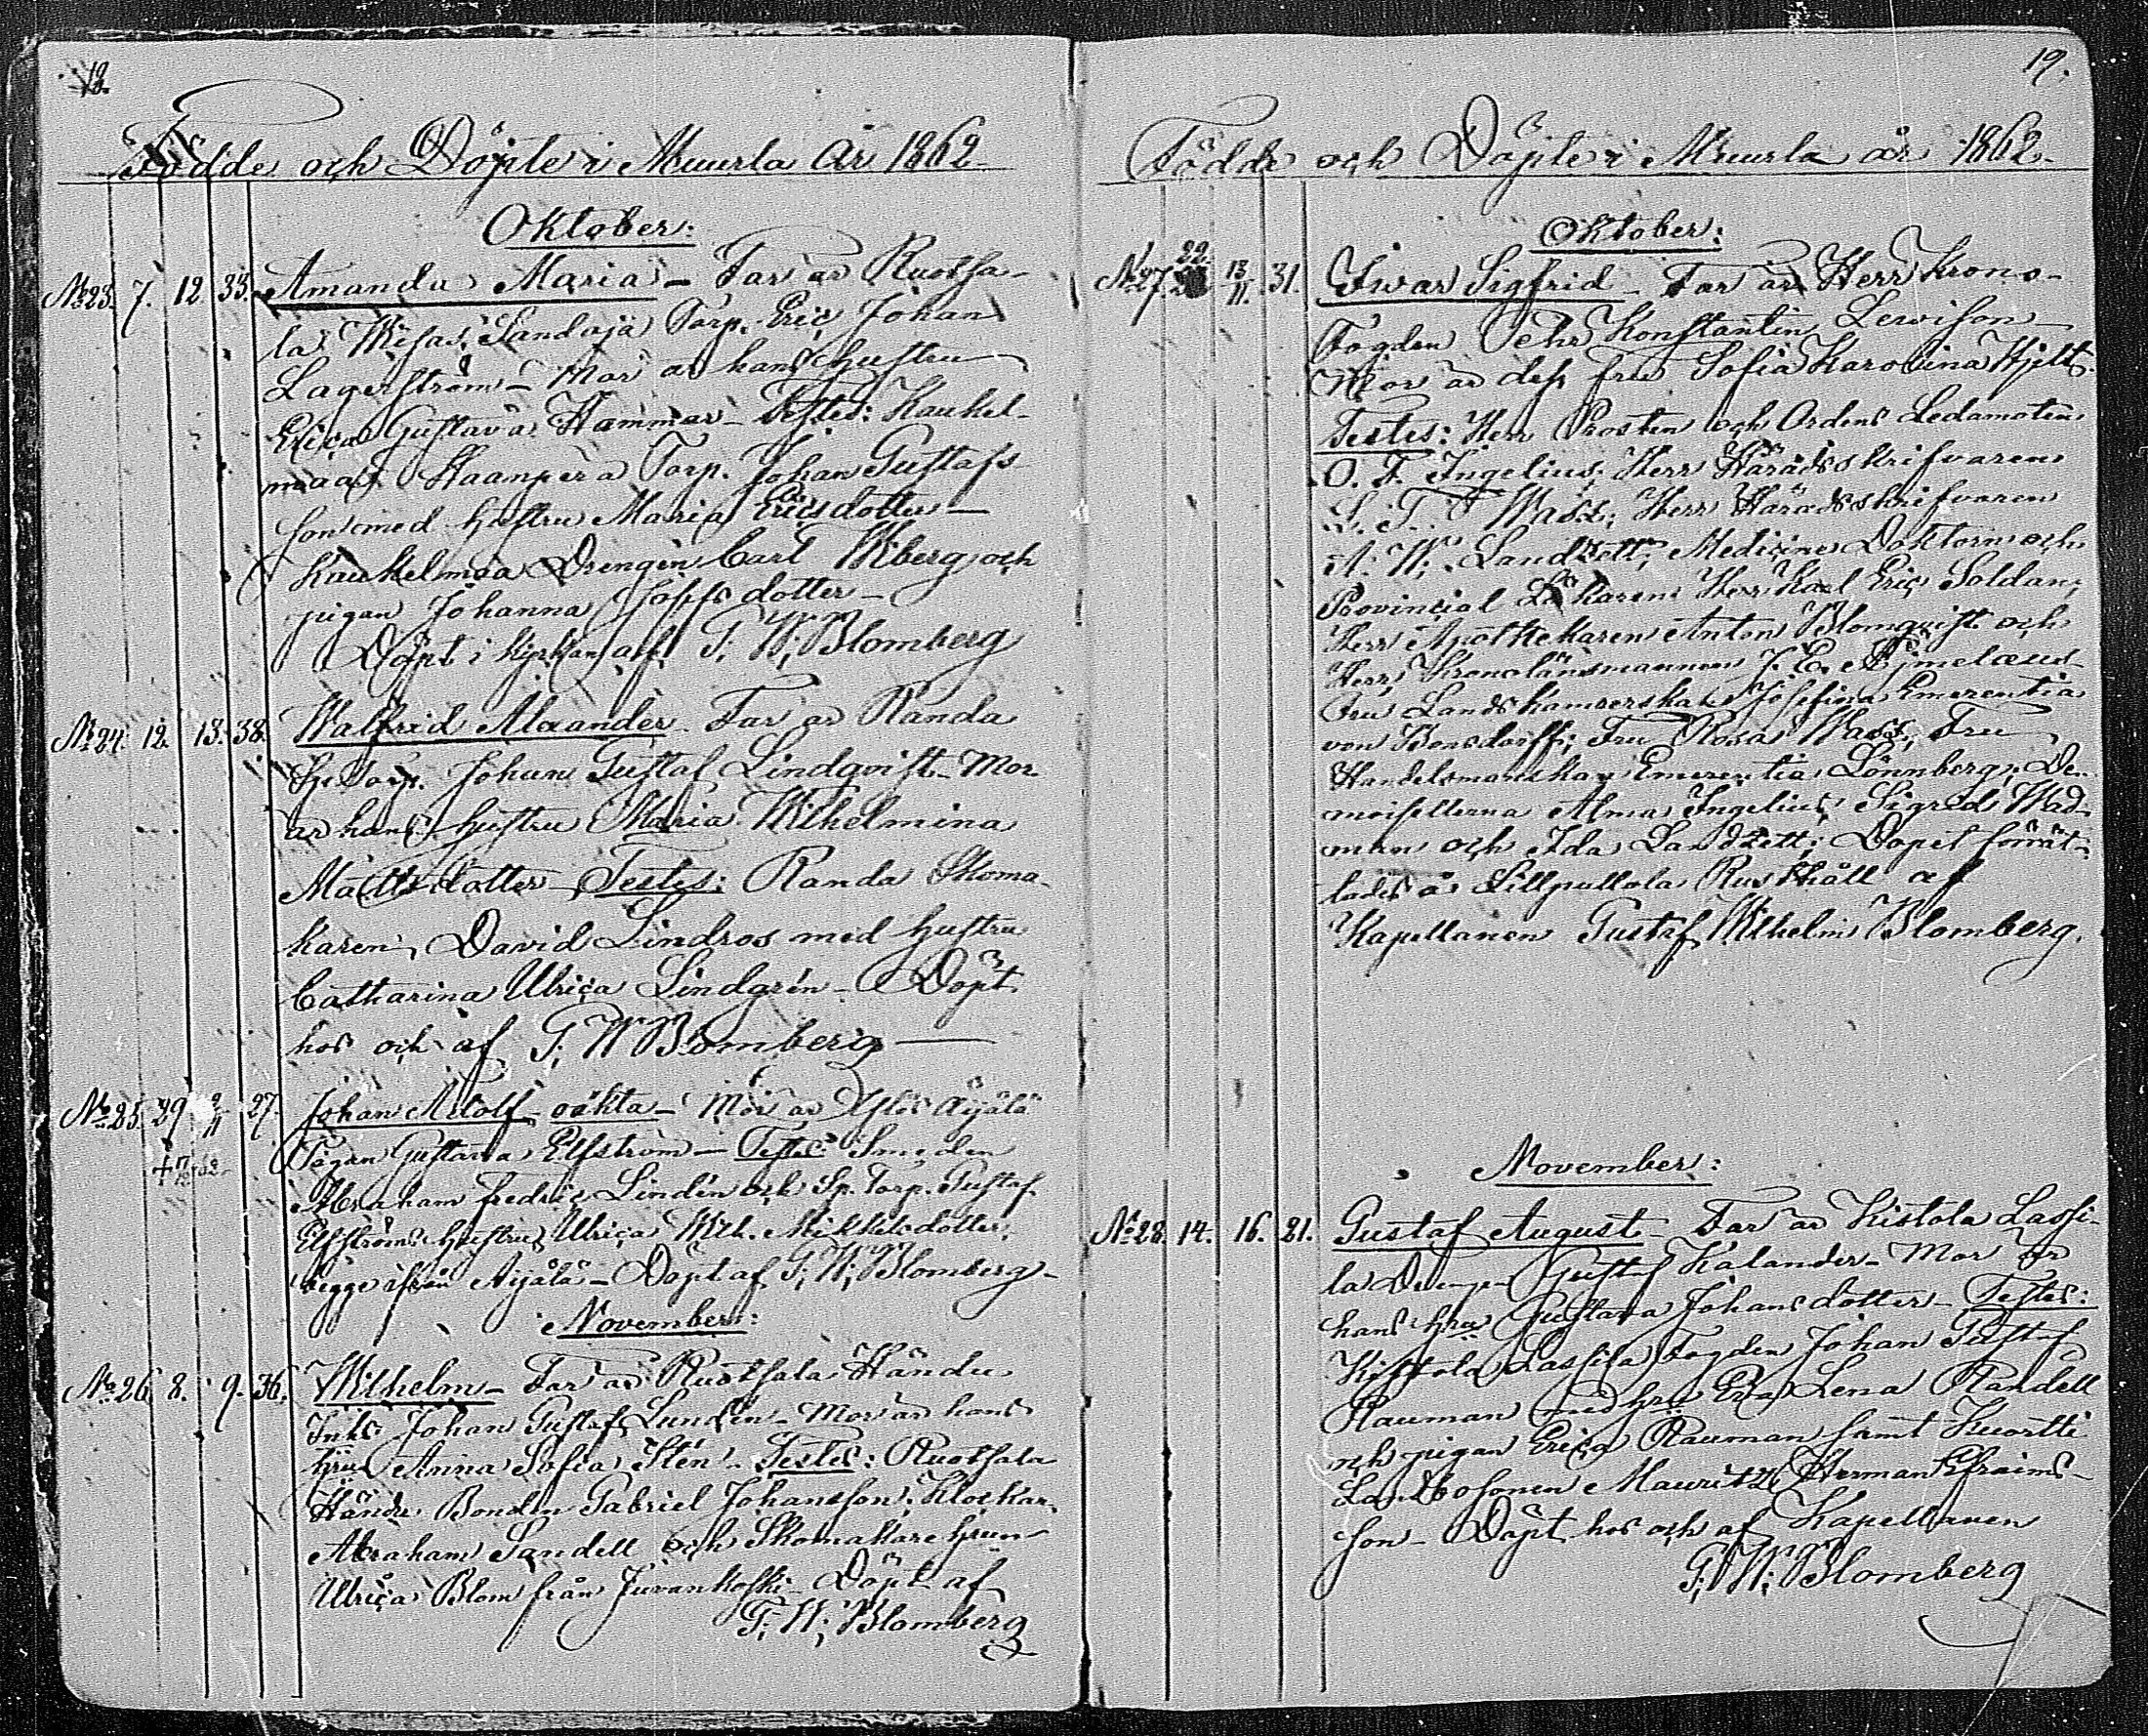 18.
Födde och Döpte i Muurla År 1862
Oktober:
No 23. 7. 12. 33. Amanda Maria – Far är Ruotsa-
la Wesas Sandojä Torp. Eric Johan
Lagerström – Mor är hans hustru
Erica Gustava Hammar – Testes: Kaukel-
maa Haanperä Torp. Johan Gustafs
son med hustru Maria Ericsdotter –
Kaukelmaa Drengen Carl Wiberg och
pigan Johanna Josefsdotter –
Döpt i Kyrkan af G. W. Blomberg
No 24. 12. 13. 38. Walfrid Alexander – Far är Randa
Sp. Torp. Johan Gustaf Lindqvist – Mor
är hans hustru Maria Wilhelmina
Mattsdotter – Testes: Randa Skoma-
karen David Lindros med hustru
Catharina Ulrica Lindgrén – Döpt
hos och af G. W. Blomberg –
No 25. 29 2/11 27. Johan Adolf oäkta – Mor är Äijälä
Pigan Gustava Elfström – Testes: Smeden
Abraham Fredric Lindén och Sp. Torp. Gustaf
Elfströms hustru Ulrica Wilh. Mikkelsdotter,
begge ifrån Äijälä – Döpt af G. W. Blomberg –
November:
No 26. 8. 9. 36. Wilhelm – Far är Ruotsala Händu
Inhs Johan Gustaf Lundén – Mor är hans
hru Anna Sofia Stén – Testes: Ruotsala
Händu Bonden Gabriel Johansson, Klockar.
Abraham Sandell och Skomakare hrun
Ulrica Blom från Juvankoski – Döpt af
G. W. Blomberg
19.
Födde och Döpte i Muurla år 1862
Oktober:
No 27. 22. 13/11. 31. Iwar Sigfrid – Far är Herr Krono-
Fogden Pehr Konstantin Lewison –
Mor är dess fru Sofia Karolina Hjelt.
Testes: Herr Prosten och Ordens Ledamoten
O. F. Ingelius, Herr Häradsskrifvaren
Wass, Herr Häradsskrifvaren
A. W. Landzett, Medicine Doktorn och
Provincial Läkaren Herr Karl Eric Soldan,
Herr Apothekaren Anton Blomqvist och
Herr Kronolänsmannen J. E. Äjmelæus –
Fru Landskamrerskan Josefina Emerentia
von Bonsdorff, Fru Rosa Wass, Fru
Handelsmanskan Emerentia Lönnberg, De-
moisellerna Alma Ingelius, Sigrid Wad-
man och Ida Landzett; Dopet förrät-
tades å Pillpullola Rusthåll af
Kapellanen Gustaf Wilhelm Blomberg.
November:
No 28. 14. 16. 21. Gustaf August – Far är Kistola Lassi-
la Drengen Gustaf Kalander – Mor är
hans hru Gustava Johansdotter – Testes:
Kistola Lassila Fogden Johan Gustaf
Rauman med hru Eva Lena Randell
och pigan Erica Rauman samt Kuortti
Landbosonen Mauritz Herman Efraims-
son – Döpt hos och af Kapellanen
G. W. Blomberg